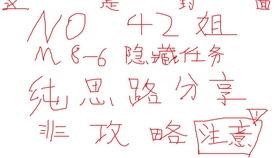 这是封面
NO 42姐
M8-6 隐藏任务
纯思路分享
非攻略 注意